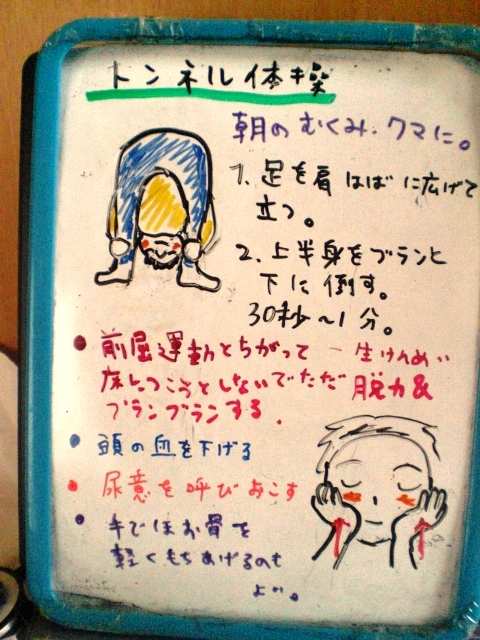 トンネル体操
朝のむくみ・クマに。
1. 足を肩はばに広げて
立つ。
2. 上半身をブランと
下に倒す。
30秒〜1分。
・前屈運動とちがって一生けんめい
床につこうとしないでただ脱力&
ブランブランする.
・頭の血を下げる
・尿意を呼びおこす
・手でほお骨を
軽くもちあげるのも
よい。